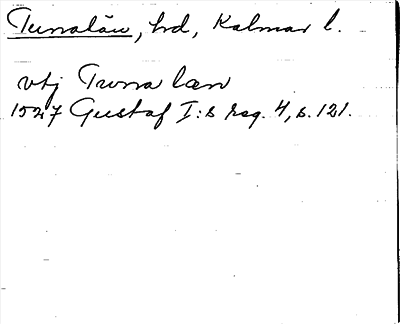 Tunalän, hd, Kalmar l.
vtj Twna lan
1527 Gustaf I:s reg. 4, s. 121.